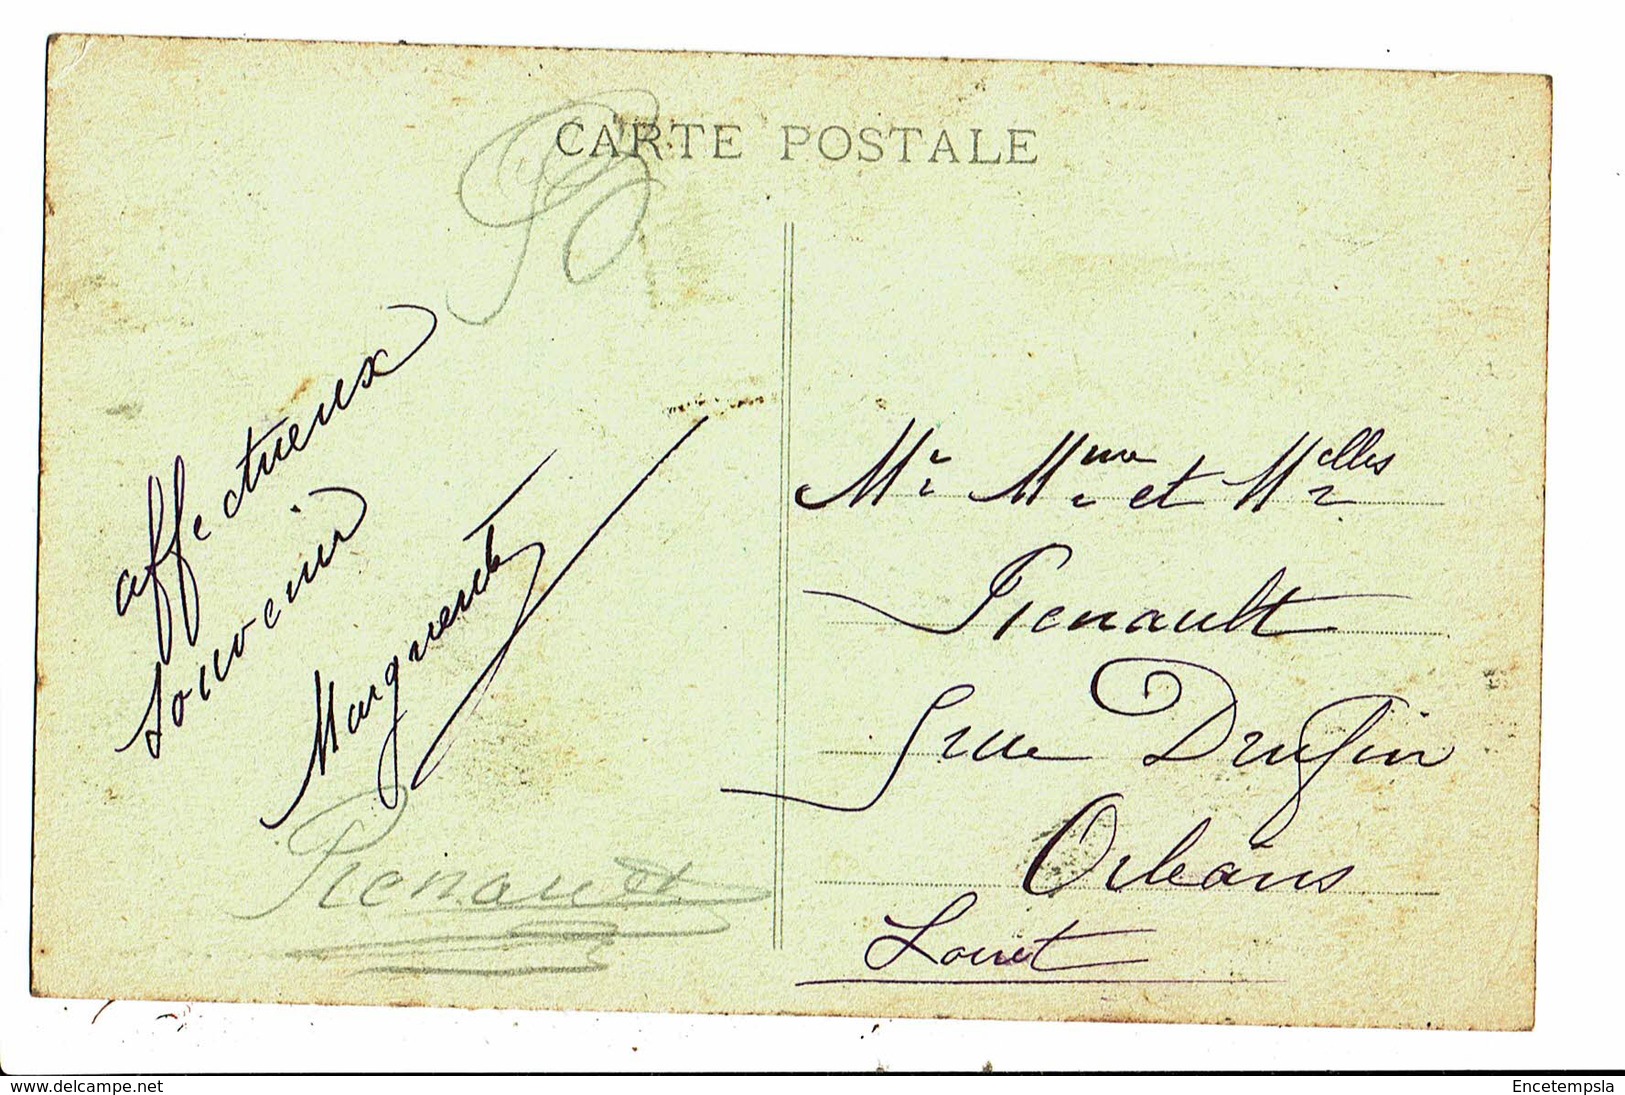 CARTE POSTALE
affectueux
souvenir
Marguerite
Renault
Mr Mme et Melles
Renault
rue
Orléans
Loiret
www.delcampe.net
Encetempsla